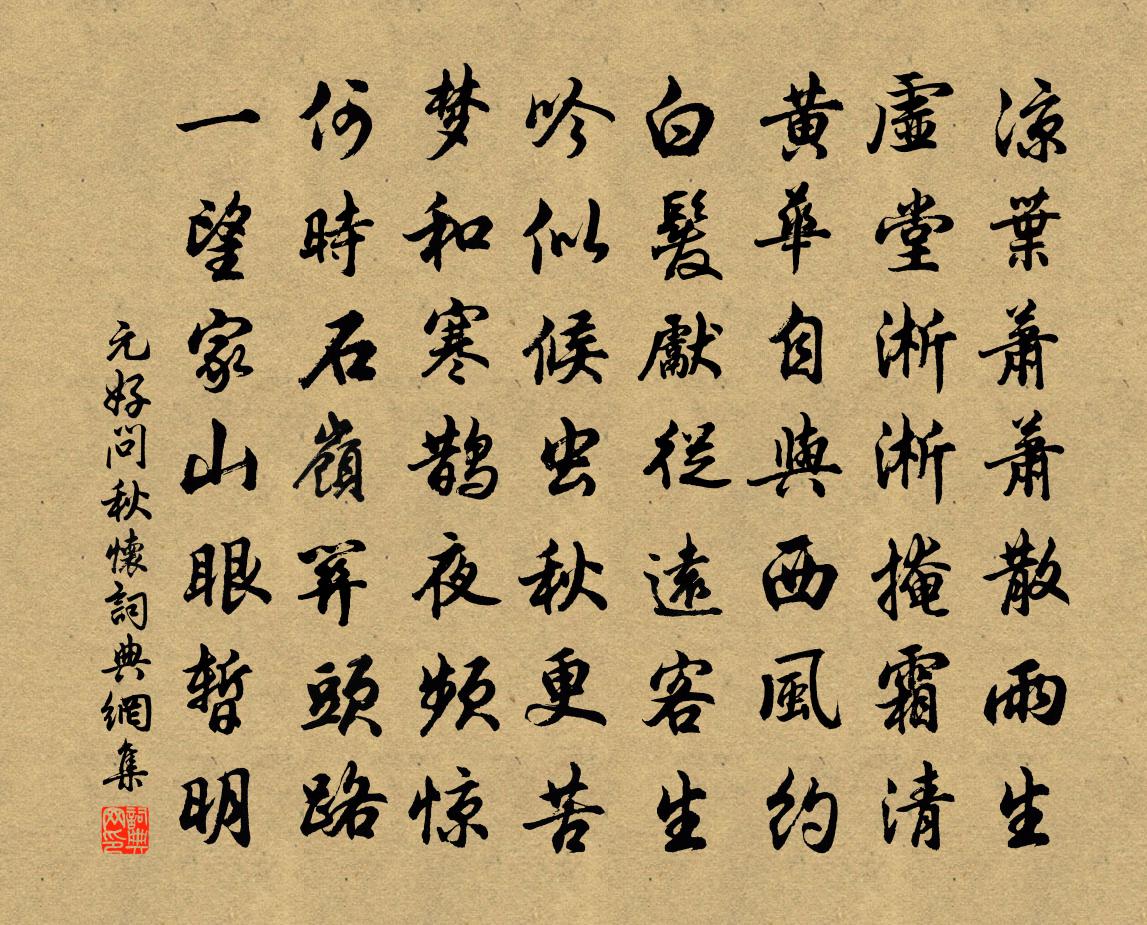 涼葉蕭蕭散雨生
虛堂淅淅掩霜清
黃華自與西風約
白髮獻從遠客生
吟似候虫秋更苦
梦和寒鵲夜頻惊
何時石嶺關頭路
一望家山眼暫明
元好问秋懷詞典網集
詞典网印